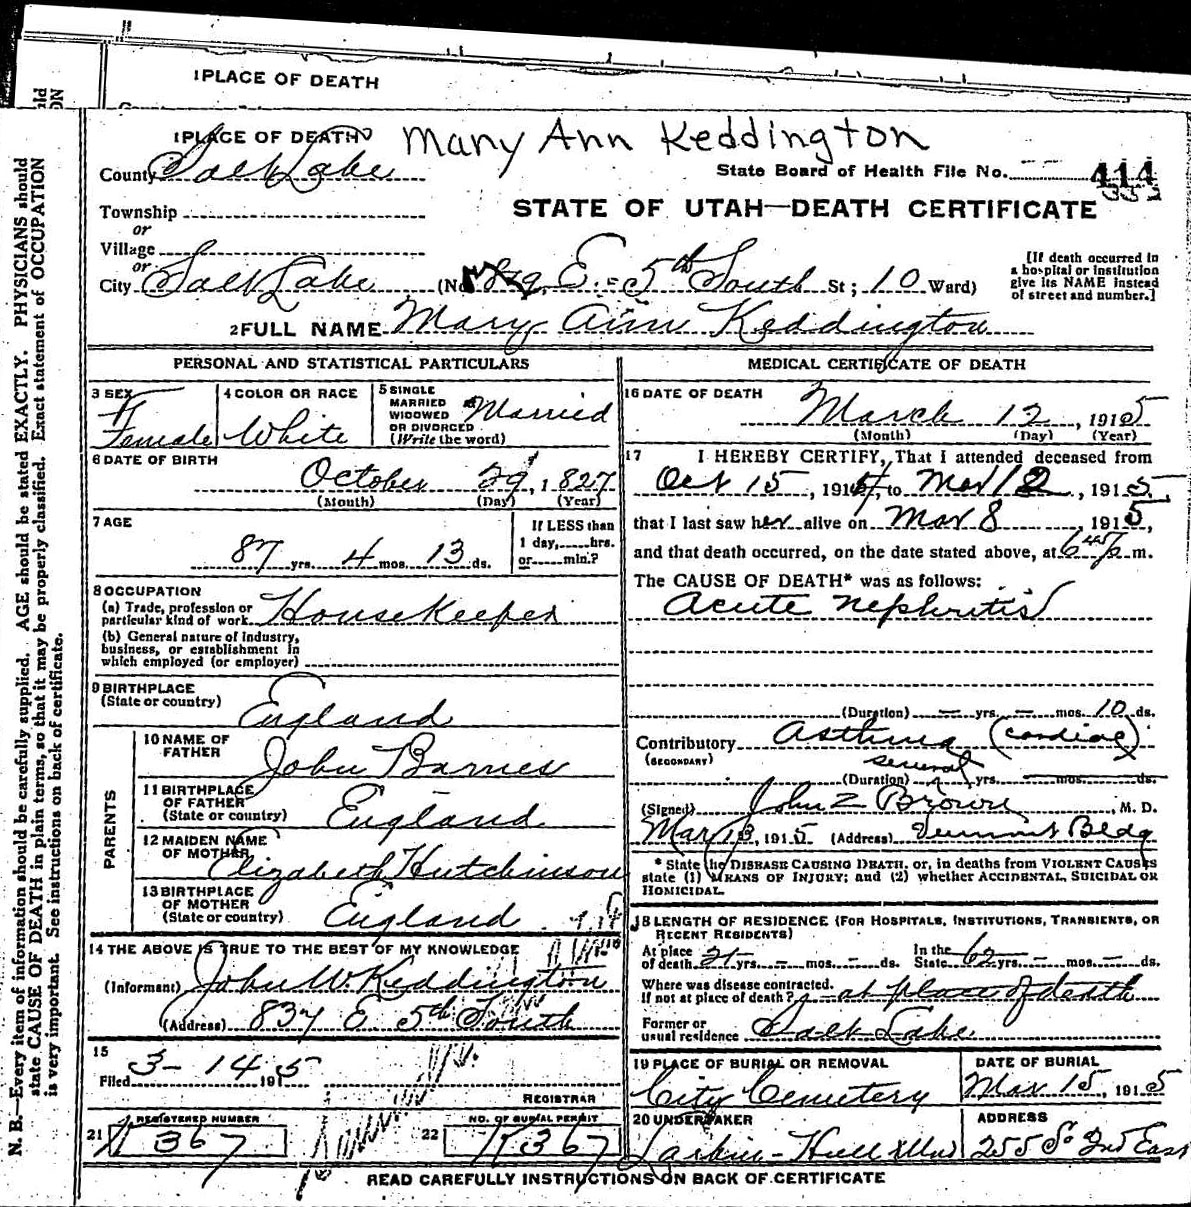 1 PLACE OF DEATH
1 PLACE OF DEATH Mary Ann Keddington
County Salt Lake
State Board of Health File No. 414
Township
or
Village
or
City Salt Lake
STATE OF UTAH—DEATH CERTIFICATE
(No. E. 5th South St; 10 Ward)
[If death occurred in
a hospital or institution
give its NAME instead
of street and number.]
2 FULL NAME Mary Ann Keddington
PERSONAL AND STATISTICAL PARTICULARS
3 SEX
Female
4 COLOR OR RACE
White
5 SINGLE
MARRIED
WIDOWED
OR DIVORCED
(Write the word)
Married
6 DATE OF BIRTH
October 29, 1827
(Month) (Day) (Year)
7 AGE
87 yrs. 4 mos. 13 ds.
If LESS than
1 day,.....hrs.
or.....min.?
8 OCCUPATION
(a) Trade, profession or
particular kind of work Housekeeper
(b) General nature of industry,
business, or establishment in
which employed (or employer)
9 BIRTHPLACE
(State or country)
England
PARENTS
10 NAME OF
FATHER
John Barnes
11 BIRTHPLACE
OF FATHER
(State or country)
England
12 MAIDEN NAME
OF MOTHER
Elizabeth Hutchinson
13 BIRTHPLACE
OF MOTHER
(State or country)
England
14 THE ABOVE IS TRUE TO THE BEST OF MY KNOWLEDGE
(Informant) John W. Keddington
(Address) 837 E. 5th South
15
Filed 3-14 1915
REGISTRAR
21 REGISTERED NUMBER
367
22 NO. OF BURIAL PERMIT
367
MEDICAL CERTIFICATE OF DEATH
16 DATE OF DEATH
March 12, 1915
(Month) (Day) (Year)
17 I HEREBY CERTIFY, That I attended deceased from
Oct 15, 1914, to Mar 12, 1915,
that I last saw her alive on Mar 8, 1915,
and that death occurred, on the date stated above, at 6 45 m.
The CAUSE OF DEATH* was as follows:
Acute nephritis
(Duration) — yrs. — mos. 10 ds.
Contributory Asthma (cardiac)
(SECONDARY)
several
(Duration) yrs. mos. ds.
(Signed) John Z Brown, M. D.
Mar 13, 1915 (Address) Bldg
* State the DISEASE CAUSING DEATH, or, in deaths from VIOLENT CAUSES
state (1) MEANS OF INJURY; and (2) whether ACCIDENTAL, SUICIDAL OR
HOMICIDAL.
18 LENGTH OF RESIDENCE (FOR HOSPITALS, INSTITUTIONS, TRANSIENTS, OR
RECENT RESIDENTS)
At place
of death 21 yrs. — mos. — ds.
In the
State 62 yrs. — mos. — ds.
Where was disease contracted.
If not at place of death? at place of death
Former or
usual residence Salt Lake
19 PLACE OF BURIAL OR REMOVAL
City Cemetery
DATE OF BURIAL
Mar 15, 1915
20 UNDERTAKER
Larkin-Hull
ADDRESS
255 So 2nd East
READ CAREFULLY INSTRUCTIONS ON BACK OF CERTIFICATE
N. B.—Every item of information should be carefully supplied. AGE should be stated EXACTLY. PHYSICIANS should
state CAUSE OF DEATH in plain terms, so that it may be properly classified. Exact statement of OCCUPATION
is very important. See instructions on back of certificate.